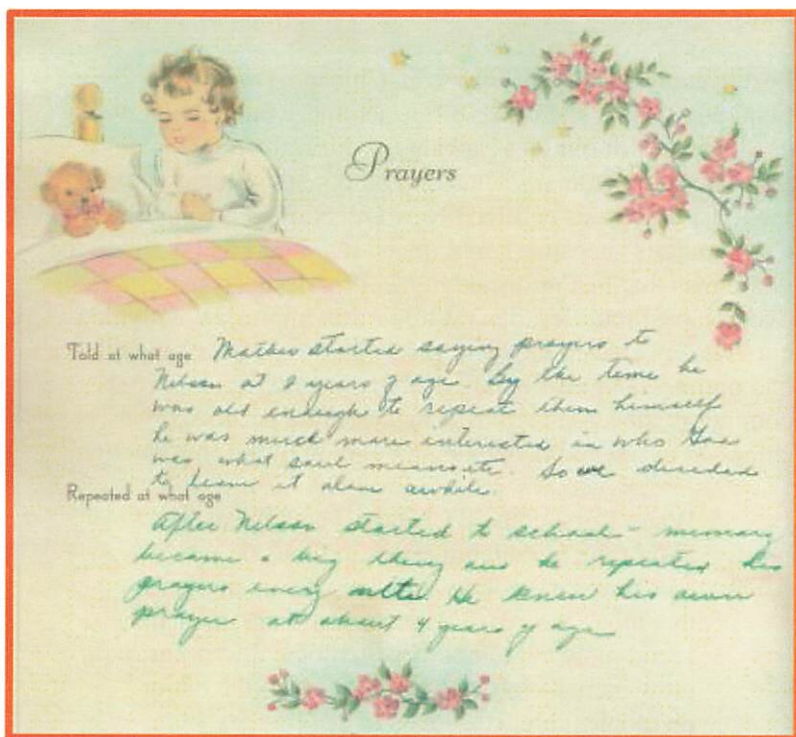 Prayers
Told at what age Mother started saying prayers to
Nelson at 2 years of age. By the time he
was old enough to repeat them himself
he was much more interested in who God
was, what soul means etc. So we decided
to leave it alone awhile.
Repeated at what age
After Nelson started to school - memory
became a big thing and he repeated his
prayers every nite. He knew his own
prayer at about 4 years of age